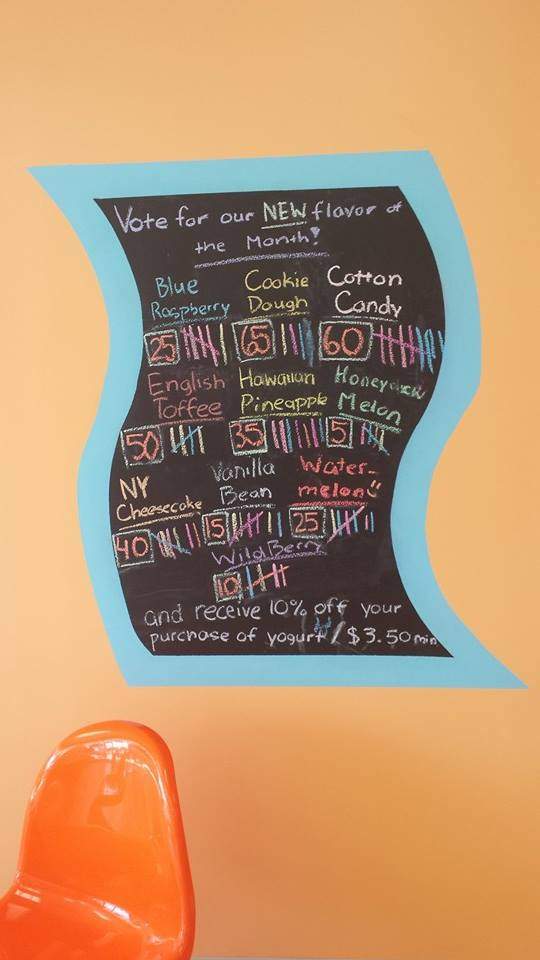 Vote for our NEW flavor of
the Month!
Blue Cookie Cotton
Raspberry Dough Candy
25 65 60
English Hawaiian Honeydew
Toffee Pineapple Melon
50 35 5
NY Vanilla Water-
Cheesecake Bean melon
40 15 25
Wild Berry
10
and receive 10% off your
purchase of yogurt / $3.50 min